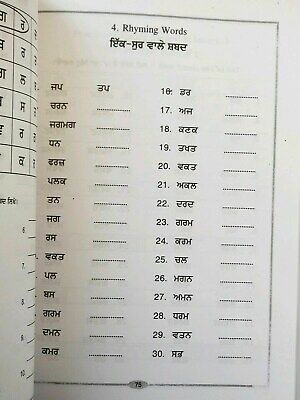 4. Rhyming Words
ਇੱਕ-ਸੁਰ ਵਾਲੇ ਸ਼ਬਦ
ਜਪ ਤਪ
ਚਰਨ
ਜਗਮਗ
ਧਨ
ਵਰਜ਼
ਪਲਕ
ਤਨ
ਜਗ
ਰਸ
ਵਕਤ
ਪਲ
ਬਸ
ਗਰਮ
ਦਮਨ
ਕਮਰ
16. ਡਰ
17. ਅਜ
18. ਕਣਕ
19. ਤਖਤ
20. ਵਕਤ
21. ਅਕਲ
22. ਦਰਦ
23. ਗਰਮ
24. ਕਰਮ
25. ਚਲ
26. ਮਗਨ
27. ਅਮਨ
28. ਧਰਮ
29. ਵਤਨ
30. ਸਭ
75
ਗ ਰੇ
ਰ
ਲ ਸ
ਵ ਰ
ਕ ਨ
6.
7.
8.
9.
10.